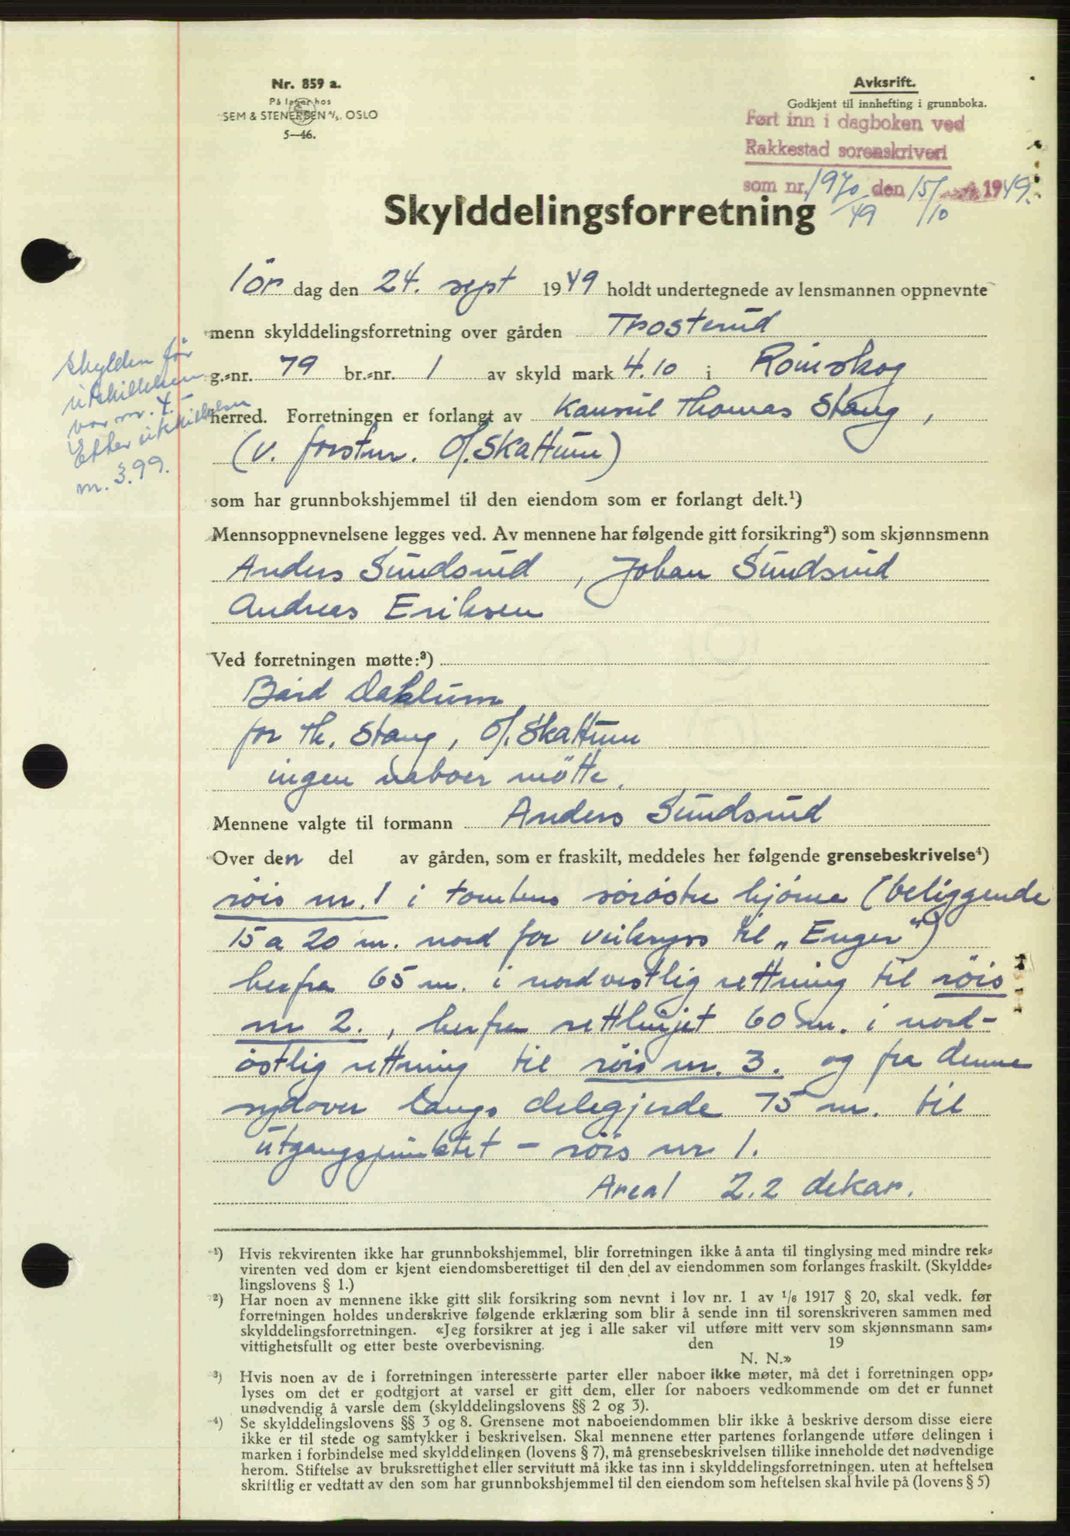 Nr. 859 a.
På lager hos
SEM & STENERSEN A/S. OSLO
5—46.
Avksrift.
Godkjent til innhefting i grunnboka.
Ført inn i dagboken ved
Rakkestad sorenskriveri
som nr. 1970/49 den 15/10 1949.
Skylddelingsforretning
lør dag den 24. sept 1949 holdt undertegnede av lensmannen oppnevnte
menn skylddelingsforretning over gården Trosterud
g.-nr. 79 br.-nr. 1 av skyld mark 4.10 i Rømskog
herred. Forretningen er forlangt av Konsul Thomas Stang,
(v. forstm. O/. Skattum)
Skylden før
utskillelsen
var m. 4.-
Etter utskillelsen
m. 3.99.
som har grunnbokshjemmel til den eiendom som er forlangt delt.¹)
Mennsoppnevnelsene legges ved. Av mennene har følgende gitt forsikring²) som skjønnsmenn
Anders Sundsrud, Johan Sundsrud
Andreas Eriksen
Ved forretningen møtte:³)
Bård Daklum
for Th. Stang, O/. Skattum
ingen naboer møtte.
Mennene valgte til formann Anders Sundsrud
Over den del av gården, som er fraskilt, meddeles her følgende grensebeskrivelse⁴)
röis nr. 1 i tomtens söröstre hjörne (beliggende
15 a 20 m. nord for veikryss til „Enger")
herfra 65 m. i nordvestlig rettning til röis
nr 2., herfra rettlinjet 60 m. i nord-
östlig rettning til röis nr. 3. og fra denne
sydover langs delegjerde 75 m. til
utgangspunktet - röis nr 1.
Areal 2.2 dekar.
¹) Hvis rekvirenten ikke har grunnbokshjemmel, blir forretningen ikke å anta til tinglysing med mindre rek-
virenten ved dom er kjent eiendomsberettiget til den del av eiendommen som forlanges fraskilt. (Skyldde-
lingslovens § 1.)
²) Har noen av mennene ikke gitt slik forsikring som nevnt i lov nr. 1 av 1/6 1917 § 20, skal vedk. før
forretningen holdes underskrive følgende erklæring som blir å sende inn til sorenskriveren sammen med
skylddelingsforretningen. «Jeg forsikrer at jeg i alle saker vil utføre mitt verv som skjønnsmann sam-
vittighetsfullt og etter beste overbevisning. den 19
N. N.»
³) Hvis noen av de i forretningen interesserte parter eller naboer ikke møter, må det i forretningen opp-
lyses om det er godtgjort at varsel er gitt dem, eller for naboers vedkommende om det er funnet
unødvendig å varsle dem (skylddelingslovens §§ 2 og 3).
⁴) Se skylddelingslovens §§ 3 og 8. Grensene mot naboeiendommen blir ikke å beskrive dersom disse eiere
ikke er til stede og samtykker i beskrivelsen. Skal mennene etter partenes forlangende utføre delingen i
marken i forbindelse med skylddelingen (lovens § 7), må grensebeskrivelsen tillike inneholde det nødvendige
herom. Stiftelse av bruksrettighet eller servitutt må ikke tas inn i skylddelingsforretningen, uten at heftelsen
skriftlig er vedtatt av den som har grunnbokshjemmel til den eiendom som heftelsen skal hvile på (lovens § 5)